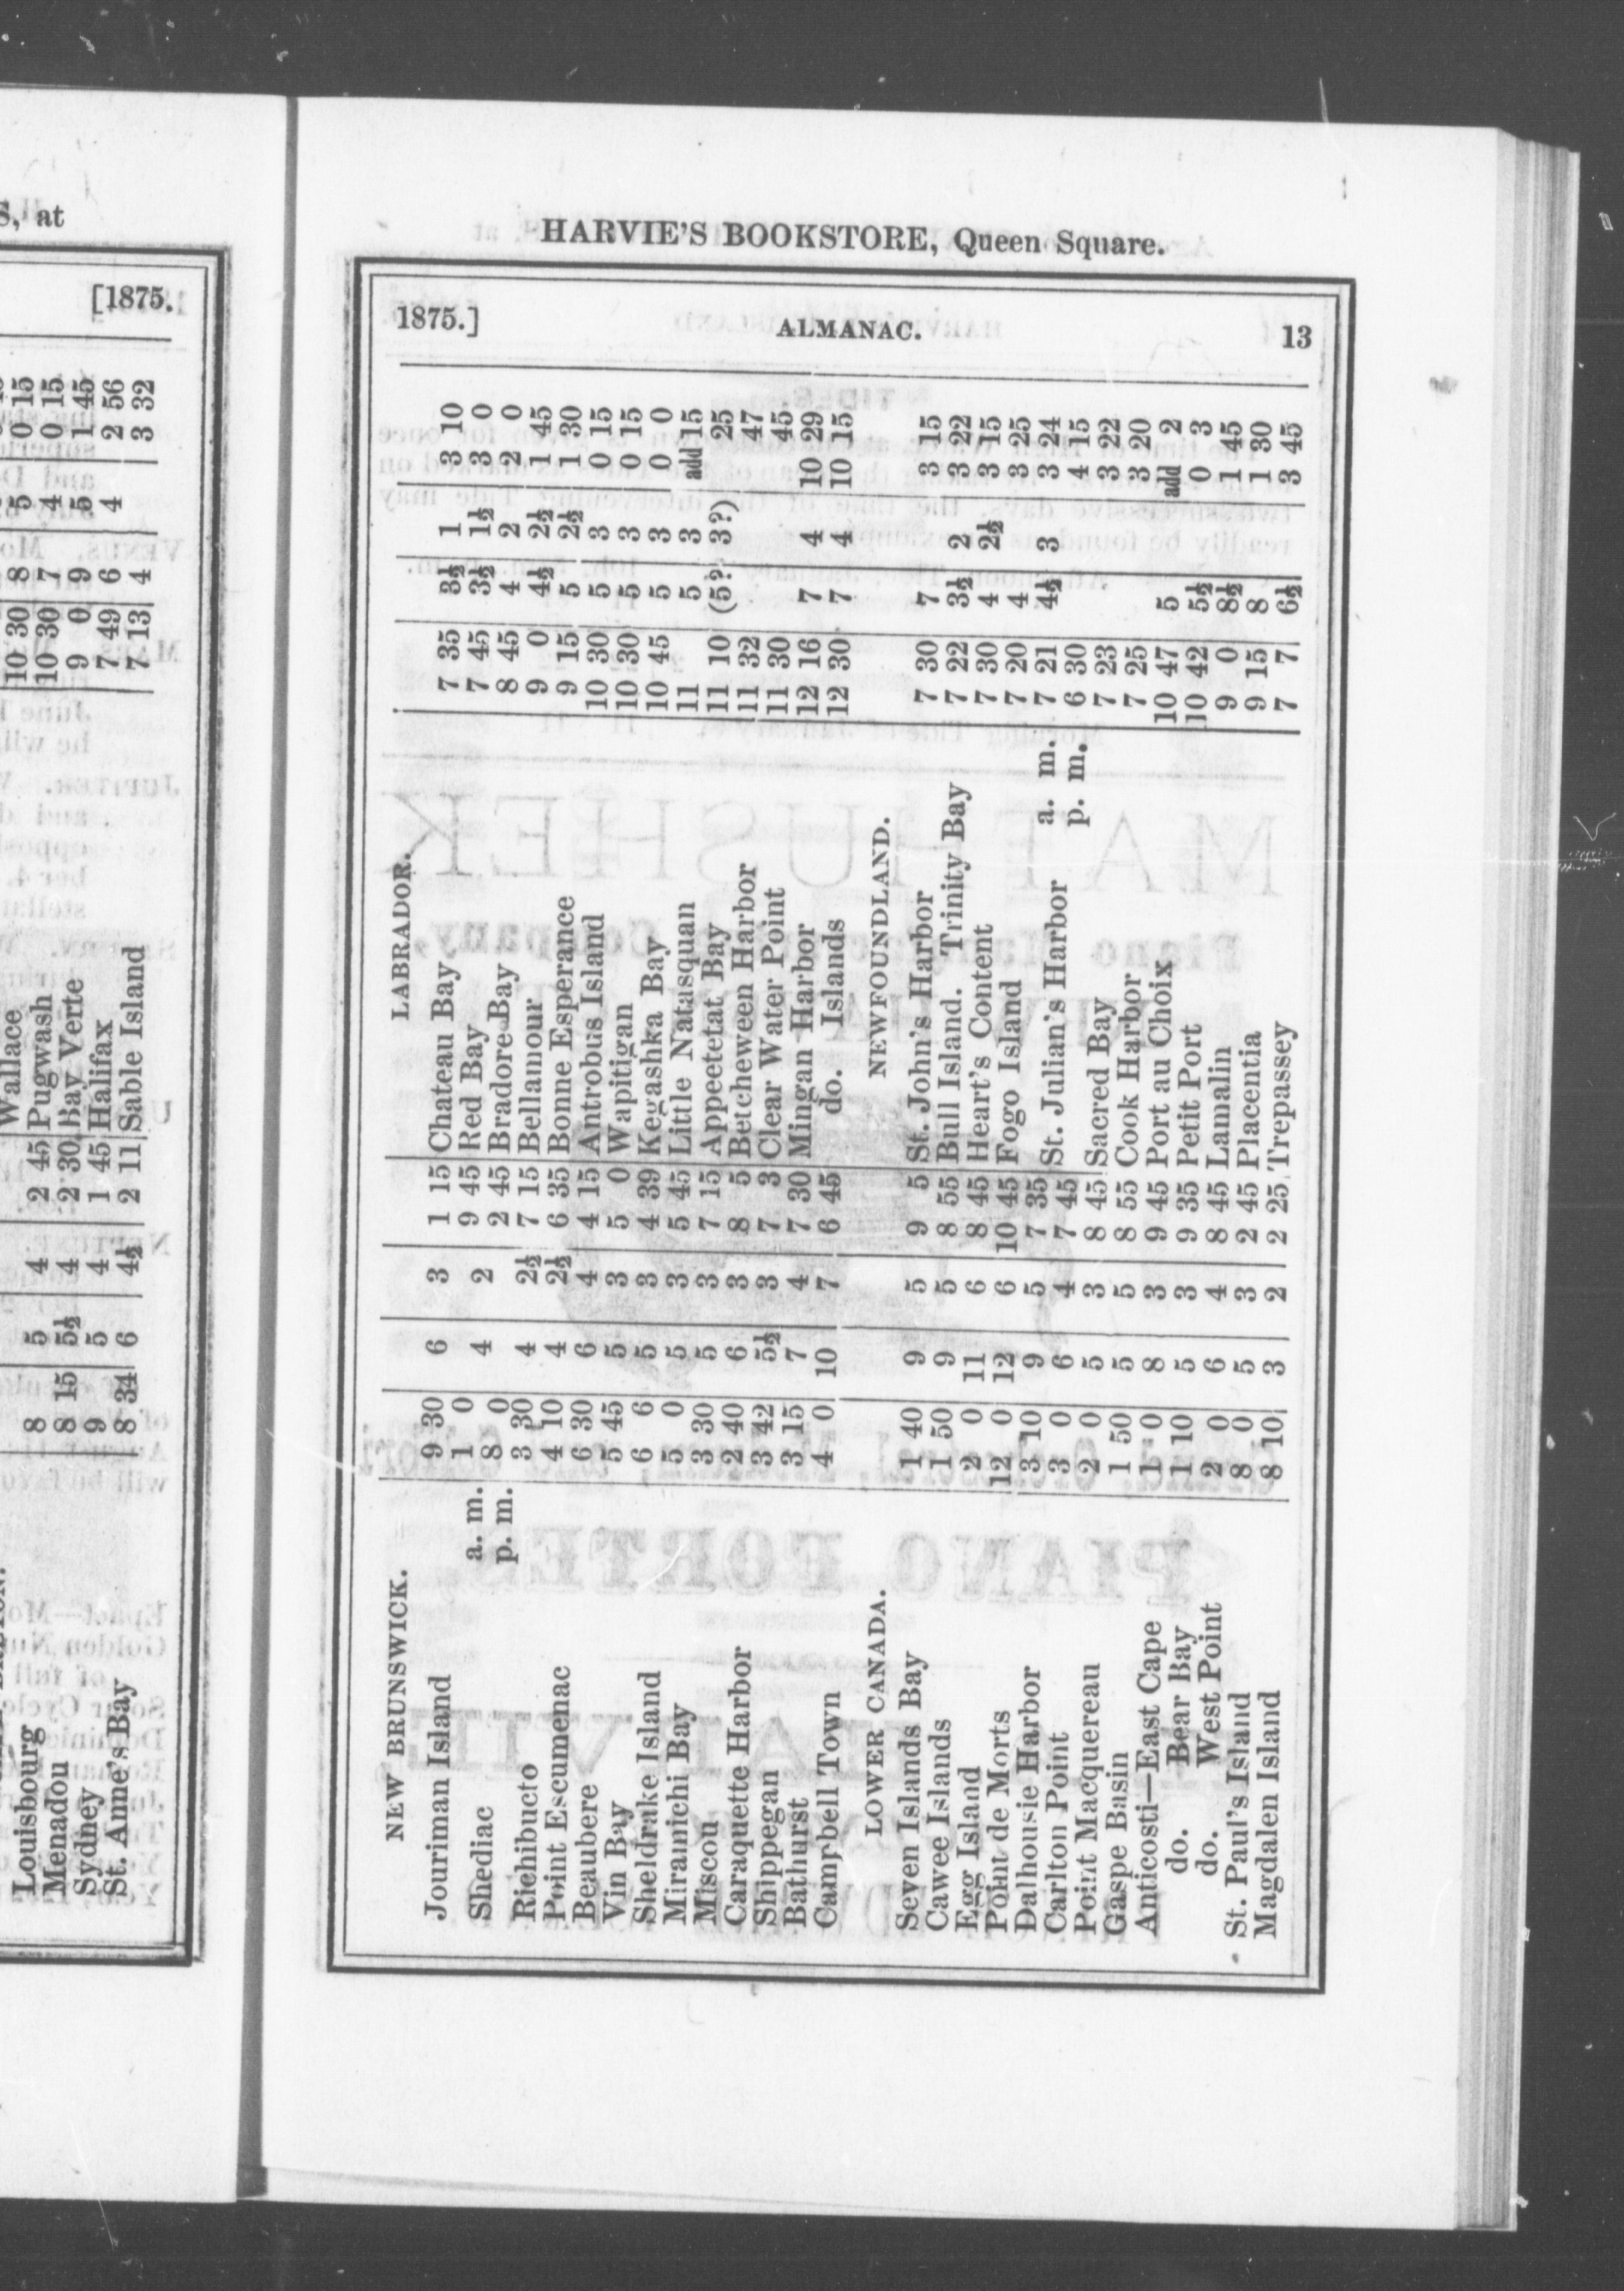 S, at
[1875.
Wallace 10 30 8 5 0 15
Louisbourg 8 5 4 2 45 Pugwash 10 30 7 4 0 15
Menadou 8 15 5½ 4 2 30 Bay Verte 9 0 9 5 1 45
Sydney 9 5 4 1 45 Halifax 7 49 6 4 2 56
St. Anne's Bay 8 34 6 4½ 2 11 Sable Island 7 13 4 3 32
HARVIE'S BOOKSTORE, Queen Square.
1875.] ALMANAC. 13
NEW BRUNSWICK. LABRADOR.
Jouriman Island 9 30 6 3 1 15 Chateau Bay 7 35 3½ 1 3 10
Shediac a. m. 1 0 4 2 9 45 Red Bay 7 45 3½ 1½ 3 0
p. m. 8 0 2 45 Bradore Bay 8 45 4 2 2 0
Richibucto 3 30 4 2½ 7 15 Bellamour 9 0 4½ 2½ 1 45
Point Escumenac 4 10 4 2½ 6 35 Bonne Esperance 9 15 5 2½ 1 30
Beaubere 6 30 6 4 4 15 Antrobus Island 10 30 5 3 0 15
Vin Bay 5 45 5 3 5 0 Wapitigan 10 30 5 3 0 15
Sheldrake Island 6 6 5 3 4 39 Kegashka Bay 10 45 5 3 0 0
Miramichi Bay 5 0 5 3 5 45 Little Natasquan 11 5 3 add 15
Miscou 3 30 5 3 7 15 Appeetetat Bay 11 10 (5? 3?) 25
Caraquette Harbor 2 40 6 3 8 5 Betcheween Harbor 11 32 47
Shippegan 3 42 5½ 3 7 3 Clear Water Point 11 30 45
Bathurst 3 15 7 4 7 30 Mingan Harbor 12 16 7 4 10 29
Campbell Town 4 0 10 7 6 45 do. Islands 12 30 7 4 10 15
LOWER CANADA. NEWFOUNDLAND.
Seven Islands Bay 1 40 9 5 9 5 St. John's Harbor 7 30 7 3 15
Cawee Islands 1 50 9 5 8 55 Bull Island. Trinity Bay 7 22 3½ 2 3 22
Egg Island 2 0 11 6 8 45 Heart's Content 7 30 4 2½ 3 15
Point de Morts 12 0 12 6 10 45 Fogo Island 7 20 4 3 25
Dalhousie Harbor 3 10 9 5 7 35 St. Julian's Harbor a. m. 7 21 4½ 3 3 24
Carlton Point 3 0 6 4 7 45 p. m. 6 30 4 15
Point Macquereau 2 0 5 3 8 45 Sacred Bay 7 23 3 22
Gaspe Basin 1 50 5 5 8 55 Cook Harbor 7 25 3 20
Anticosti—East Cape 1 0 8 3 9 45 Port au Choix 10 47 5 add 2
do. Bear Bay 1 10 5 3 9 35 Petit Port 10 42 5½ 0 3
do. West Point 2 0 6 4 8 45 Lamalin 9 0 8½ 1 45
St. Paul's Island 8 0 5 3 2 45 Placentia 9 15 8 1 30
Magdalen Island 8 10 3 2 2 25 Trepassey 7 7 6½ 3 45